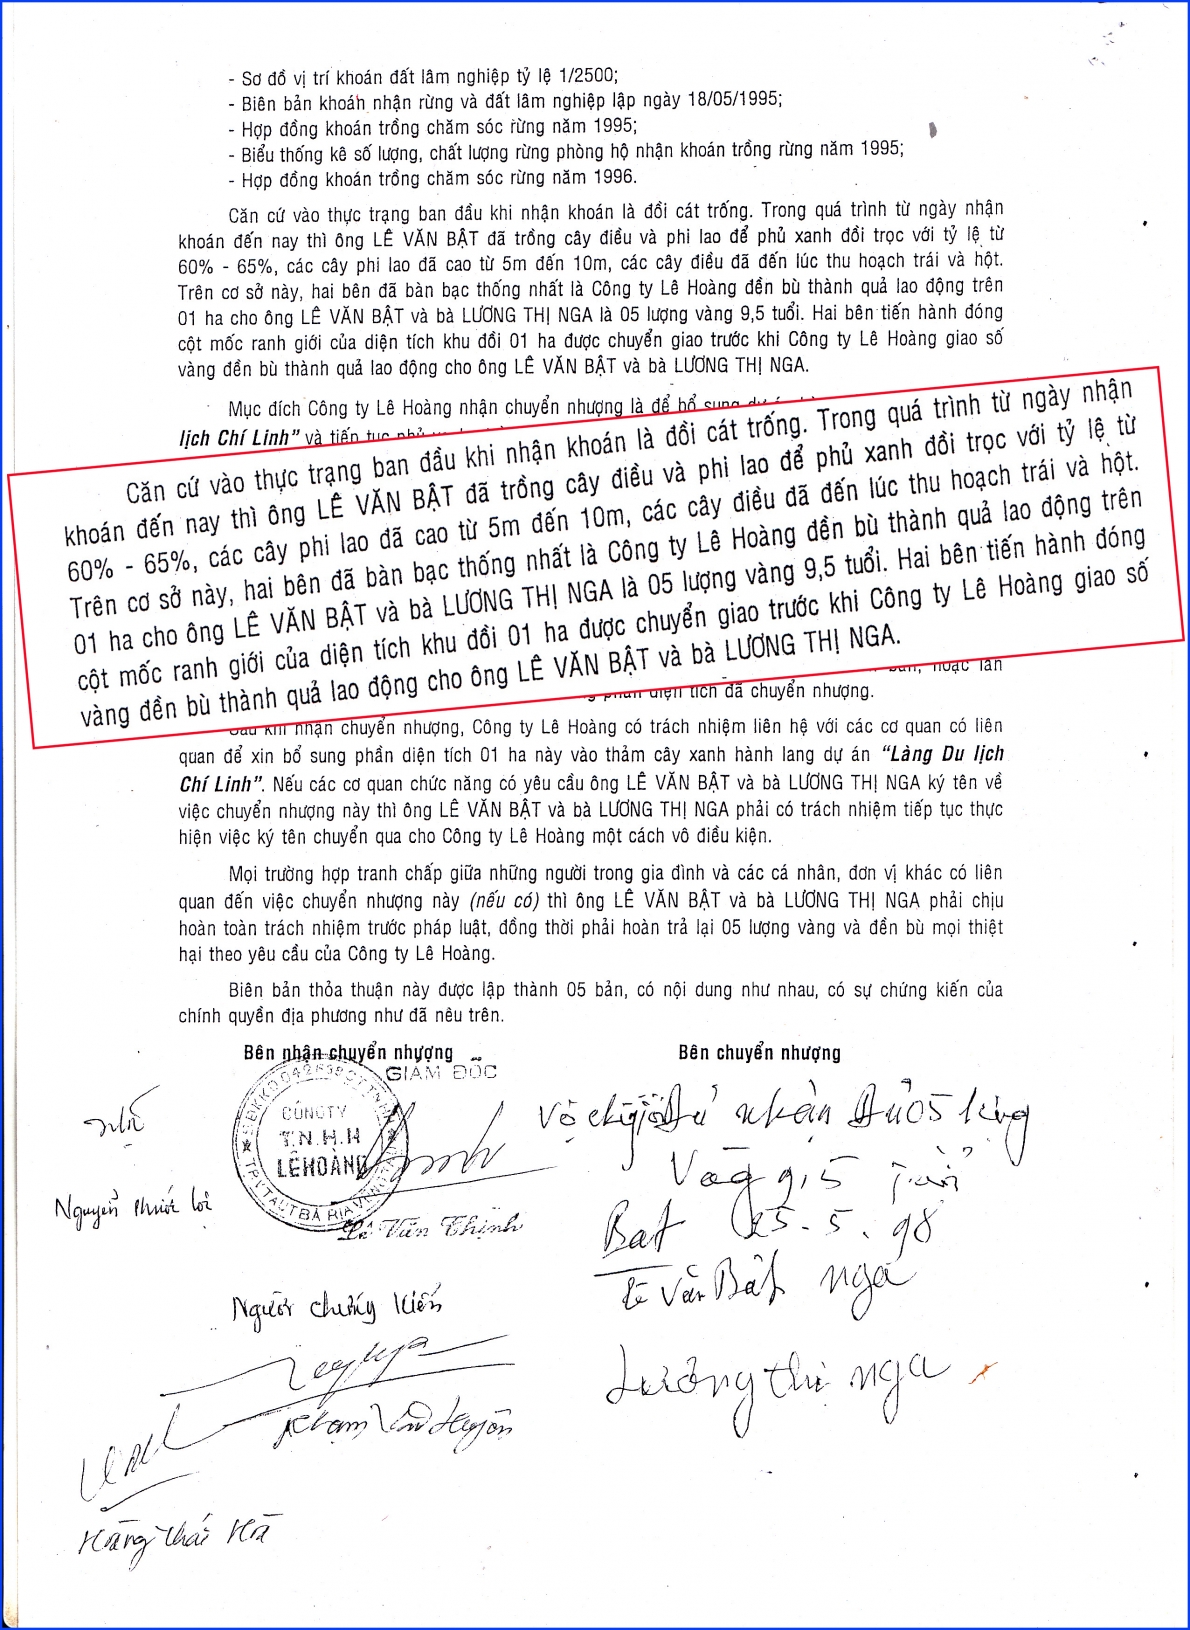 - Sơ đồ vị trí khoán đất lâm nghiệp tỷ lệ 1/2500;
- Biên bản khoán nhận rừng và đất lâm nghiệp lập ngày 18/05/1995;
- Hợp đồng khoán trồng chăm sóc rừng năm 1995;
- Biểu thống kê số lượng, chất lượng rừng phòng hộ nhận khoán trồng rừng năm 1995;
- Hợp đồng khoán trồng chăm sóc rừng năm 1996.
Căn cứ vào thực trạng ban đầu khi nhận khoán là đồi cát trống. Trong quá trình từ ngày nhận
khoán đến nay thì ông LÊ VĂN BẬT đã trồng cây điều và phi lao để phủ xanh đồi trọc với tỷ lệ từ
60% - 65%, các cây phi lao đã cao từ 5m đến 10m, các cây điều đã đến lúc thu hoạch trái và hột.
Trên cơ sở này, hai bên đã bàn bạc thống nhất là Công ty Lê Hoàng đền bù thành quả lao động trên
01 ha cho ông LÊ VĂN BẬT và bà LƯƠNG THỊ NGA là 05 lượng vàng 9,5 tuổi. Hai bên tiến hành đóng
cột mốc ranh giới của diện tích khu đồi 01 ha được chuyển giao trước khi Công ty Lê Hoàng giao số
vàng đền bù thành quả lao động cho ông LÊ VĂN BẬT và bà LƯƠNG THỊ NGA.
Mục đích Công ty Lê Hoàng nhận chuyển nhượng là để bổ sung
lịch Chí Linh” và tiến tục phủ
Căn cứ vào thực trạng ban đầu khi nhận khoán là đồi cát trống. Trong quá trình từ ngày nhận
khoán đến nay thì ông LÊ VĂN BẬT đã trồng cây điều và phi lao để phủ xanh đồi trọc với tỷ lệ từ
60% - 65%, các cây phi lao đã cao từ 5m đến 10m, các cây điều đã đến lúc thu hoạch trái và hột.
Trên cơ sở này, hai bên đã bàn bạc thống nhất là Công ty Lê Hoàng đền bù thành quả lao động trên
01 ha cho ông LÊ VĂN BẬT và bà LƯƠNG THỊ NGA là 05 lượng vàng 9,5 tuổi. Hai bên tiến hành đóng
cột mốc ranh giới của diện tích khu đồi 01 ha được chuyển giao trước khi Công ty Lê Hoàng giao số
vàng đền bù thành quả lao động cho ông LÊ VĂN BẬT và bà LƯƠNG THỊ NGA.
hoặc lấn
diện tích đã chuyển nhượng.
Sau khi nhận chuyển nhượng, Công ty Lê Hoàng có trách nhiệm liên hệ với các cơ quan có liên
quan để xin bổ sung phần diện tích 01 ha này vào thảm cây xanh hành lang dự án “Làng Du lịch
Chí Linh”. Nếu các cơ quan chức năng có yêu cầu ông LÊ VĂN BẬT và bà LƯƠNG THỊ NGA ký tên về
việc chuyển nhượng này thì ông LÊ VĂN BẬT và bà LƯƠNG THỊ NGA phải có trách nhiệm tiếp tục thực
hiện việc ký tên chuyển qua cho Công ty Lê Hoàng một cách vô điều kiện.
Mọi trường hợp tranh chấp giữa những người trong gia đình và các cá nhân, đơn vị khác có liên
quan đến việc chuyển nhượng này (nếu có) thì ông LÊ VĂN BẬT và bà LƯƠNG THỊ NGA phải chịu
hoàn toàn trách nhiệm trước pháp luật, đồng thời phải hoàn trả lại 05 lượng vàng và đền bù mọi thiệt
hại theo yêu cầu của Công ty Lê Hoàng.
Biên bản thỏa thuận này được lập thành 05 bản, có nội dung như nhau, có sự chứng kiến của
chính quyền địa phương như đã nêu trên.
Bên nhận chuyển nhượng Bên chuyển nhượng
GIÁM ĐỐC
CÔNG TY
T.N.H.H
LÊ HOÀNG
Nguyễn Phước Lợi
Lê Văn Thịnh
nhận Đủ 05 lượng
Vàng 9,5 Tuổi
Bat 25.5.98
Lê Văn Bật nga
Lương thị nga
Người chứng kiến
Hàng Thái Hà